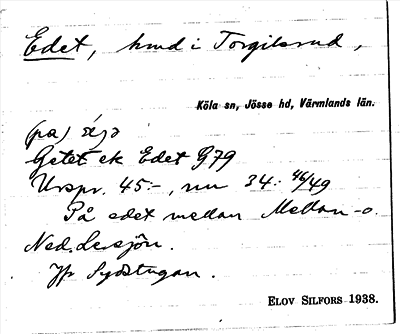 Edet, hmd i Torgilsrud,
Köla sn, Jösse hd, Värmlands län.
(pa)
Getet ek Edet G79
Urspr. 45:-, nu 34: 46/49
På edet mellan Mellan-o.
Ned. Lersjön.
Jfr Sydstugan.
ELOV SILFORS 1938.